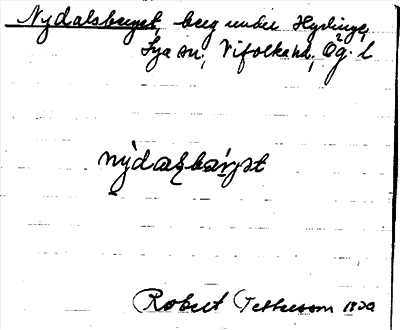 Nydalsberget, berg under Hyclinge,
Sya sn, Vifolka hd, Ög. l
nýdaɭsbærjət
Robert Pettersson 1920